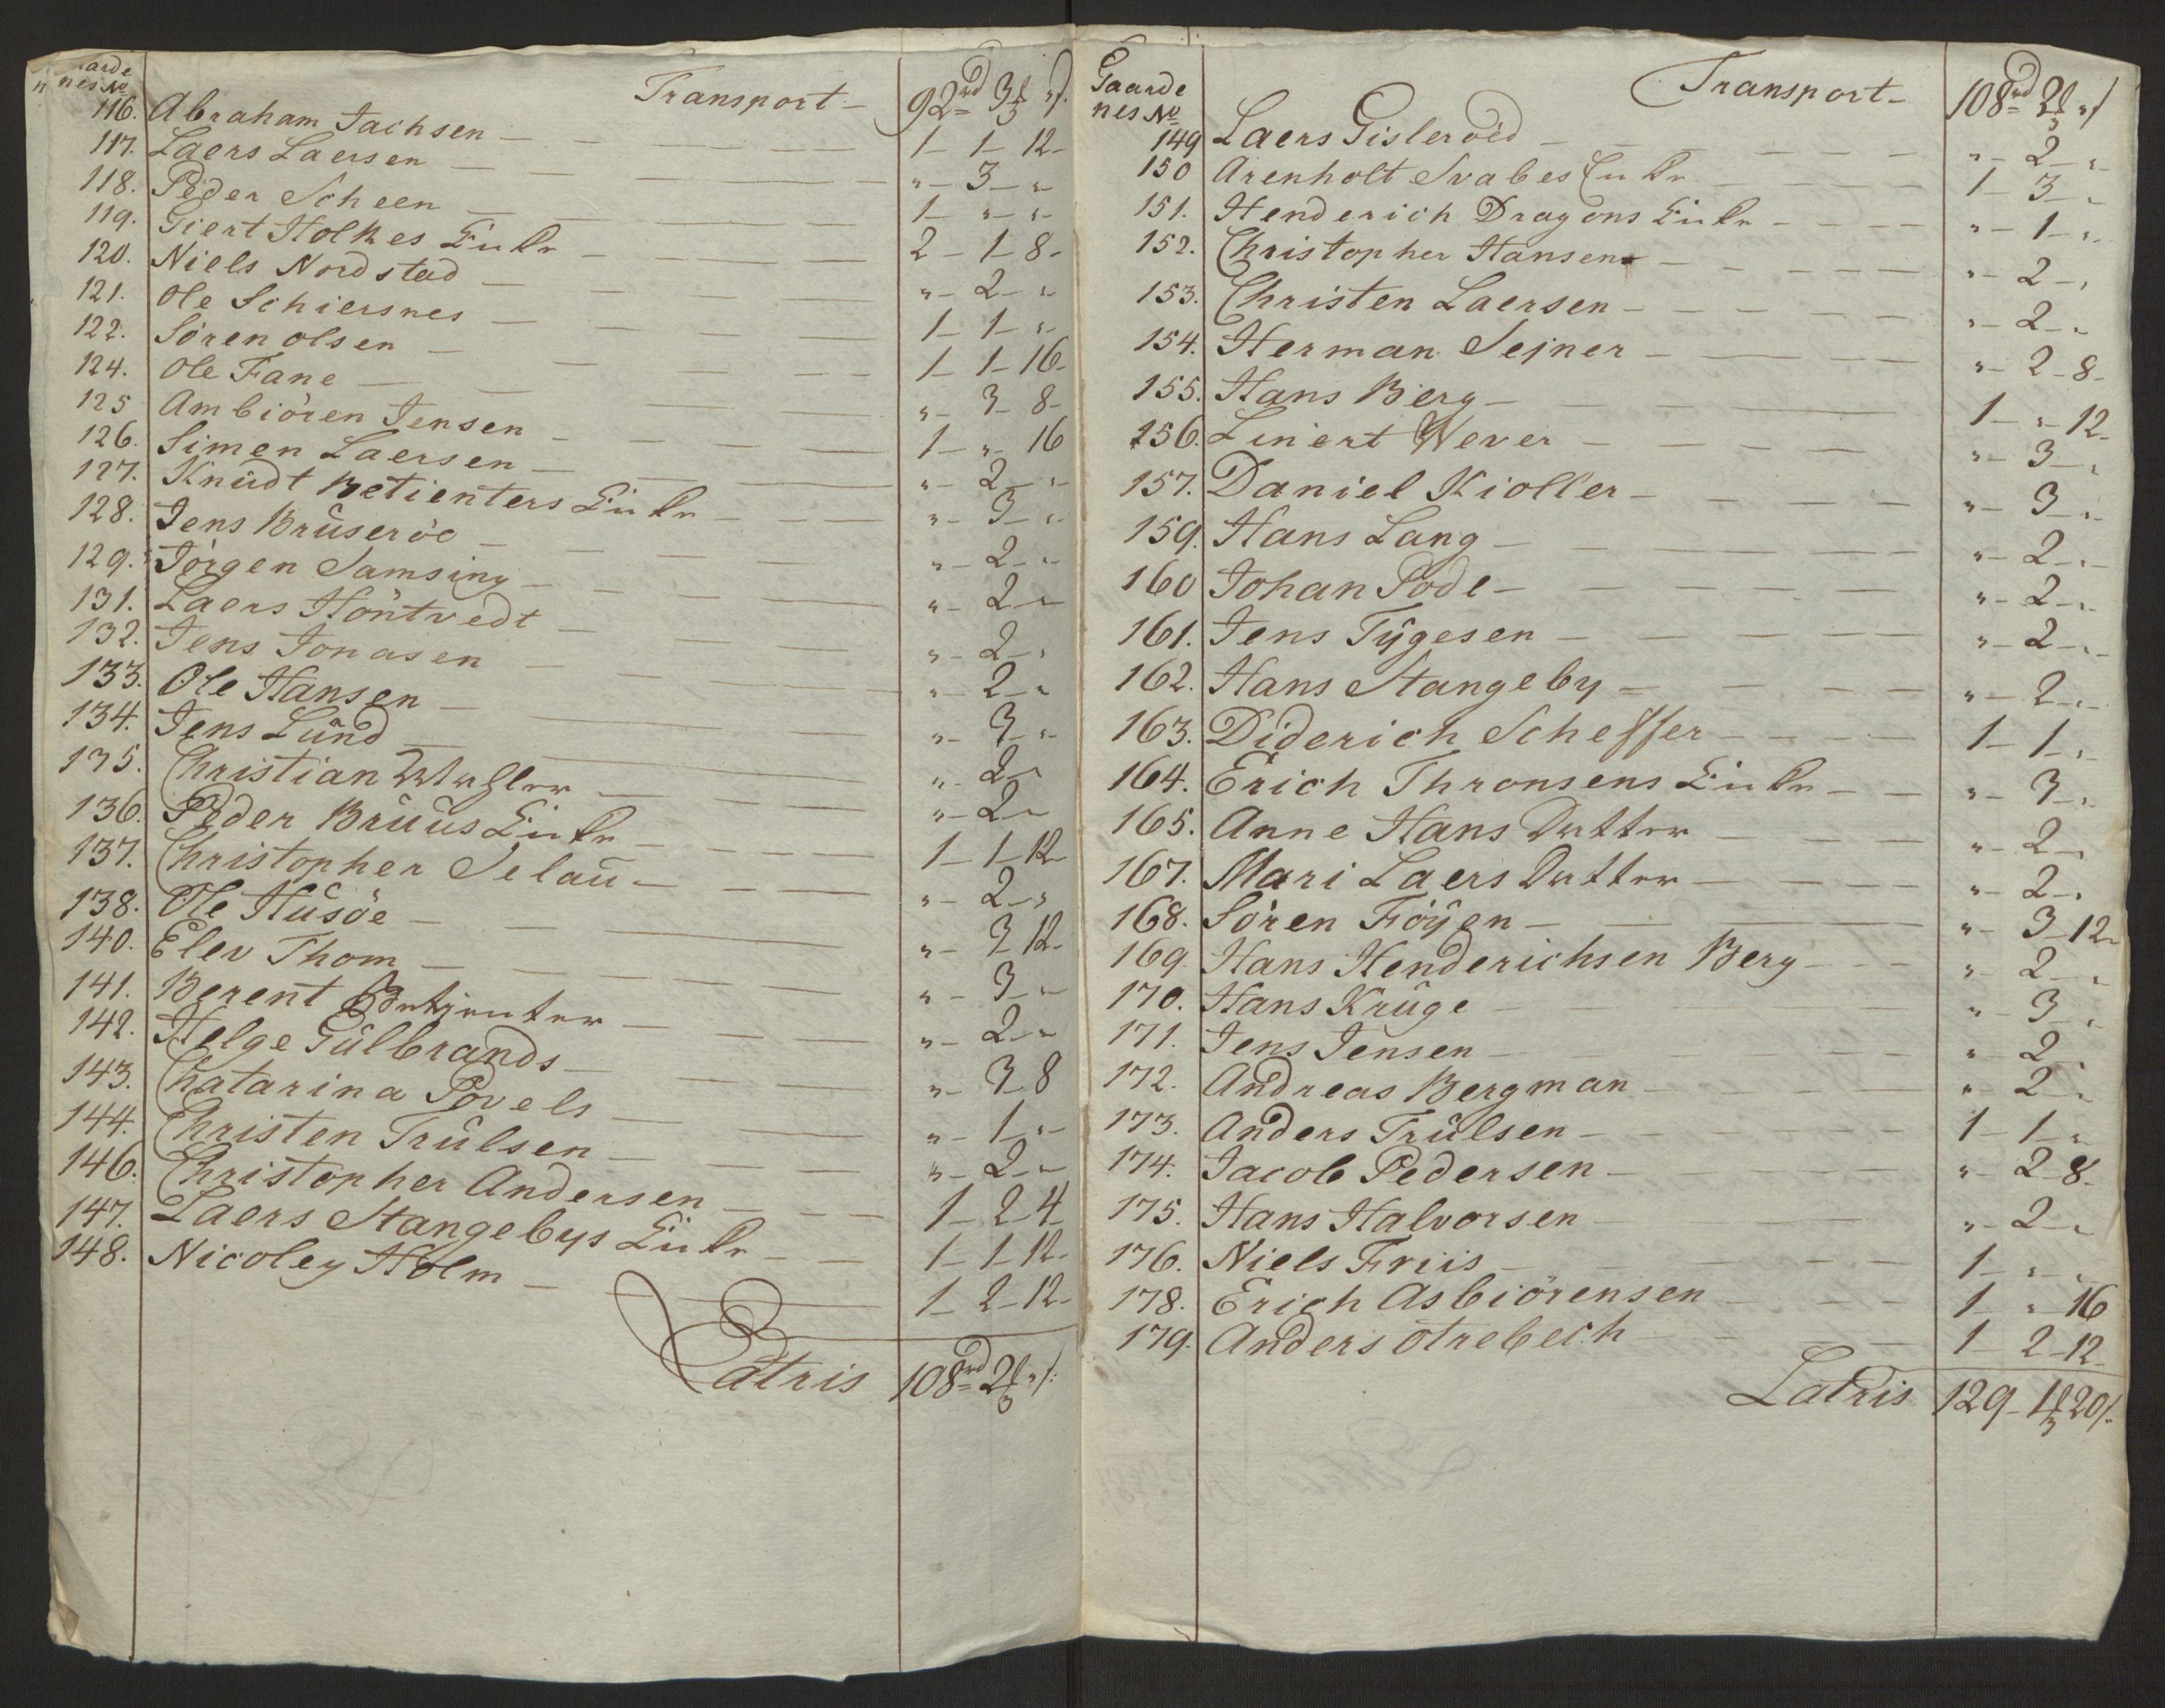 Gaarde
nes No
Transport - 92rd 3 f
116. Abraham Jachsen - 1 - 1 - 12 -
117. Laers Laersen - " - 3 - "
118. Peder Scheen - 1 - " - "
119. Giert Holkes Enke - 2 - 1 - 8 -
120. Niels Nordstad - " - 2 - "
121. Ole Schiersnes - 1 - 1 - "
122. Sören Olsen - 1 - 1 - 16 -
124. Ole Fane - " - 3 - 8 -
125 Ambiören Jensen - 1 - " - 16
126. Simen Laersen - " - 2 - "
127. Knüdt Betienters Enke - " - 3 - "
128. Jens Brüseröe - " - 2 - "
129. Jörgen Samsing - " - 2 - "
131. Laers Höntvedt - " - 2 - "
132. Jens Jonasen - " - 2 - "
133. Ole Hansen - " - 3 - "
134. Jens Lünd - " - 2 - "
135. Christian - " - 2 - "
136. Peder Brüüs Enke - 1 - 1 - 12 -
137. Christopher Selaü - " - 2 - "
138. Ole Hüsöe - " - 3 12 -
140. Elev Thom - " - 3 - "
141. Berent Betienter - " - 2 - "
142. Helge Gülbrands - " - 3 - 8
143. Chatarina Povels - " - 1 - "
144. Christen Trülsen - " - 2 - "
146. Christopher Andersen - 1 - 2 - 4
147. Laers Stangebys Enke - 1 - 1 - 12 -
148. Nicoley Holm - 1 - 2 - 12 -
Latris 108rd 2 f
Gaarde
nes No
Transport - 108rd 2 f
149 Laers Gisleröed - " - 2 - "
150 Arenholt Svabes Enke - 1 - 3 - "
151. Henderich Dragons Enke - " - 1 - "
152. Christopher Hansen - " - 2 - "
153. Christen Laersen - " - 2 - "
154. Herman Sejner - " - 2 - 8 -
155. Hans Berg - 1 - " - 12 -
156. Linert Wever - " - 3 - "
157. Daniel Kioller - " - 3 - "
159. Hans Lang - " - 2 - "
160 Johan Pode - " - 2 - "
161. Jens Tÿgesen - " - 2 - "
162. Hans Stangeby - " - 2 - "
163. Diderich Scheffer - 1 - 1 - "
164. Erich Thronsens Enke - " - 3 - "
165. Anne Hans Datter - " - 2 - "
167. Mari Laers Datter - " - 2 - "
168. Sören Föÿen - " - 3 12 -
169 Hans Henderichsen Berg - " - 2 - "
170. Hans Krüge - " - 3 - "
171. Jens Jensen - " 2 - "
172. Andreas Bergman - " 2 - "
173. Anders Trülsen - 1 - 1 - "
174. Jacob Pedersen - " - 2 - 8 -
175. Hans Halvorsen - " - 2 - "
176. Niels Friis - 1 - " - "
178. Erich Asbiörensen - 1 - " - 16
179. Anders Otrebech - 1 - 2 - 12 -
Latris 129 - 1 20 f